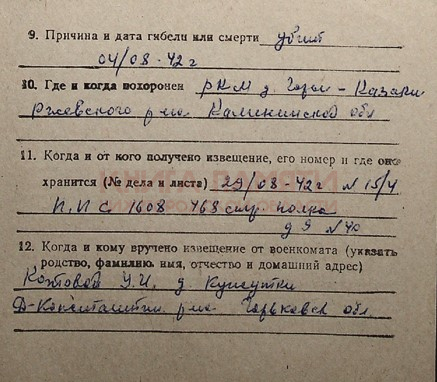 9. Причина и дата гибели или смерти убит
04/08-42г
10. Где и когда похоронен РКМ д. Горы-Казаки
Ржевского р-на Калининской обл
11. Когда и от кого получено извещение, его номер и где оно
хранится (№ дела и листа) 29/08-42г N 15/4
п.п.с. 1608 468 стр. полка
д 9 N 40
12. Когда и кому вручено извещение от военкомата (указать
родство, фамилию, имя, отчество и домашний адрес)
У.И. д.
Д-Константин. р-на Горьковск обл